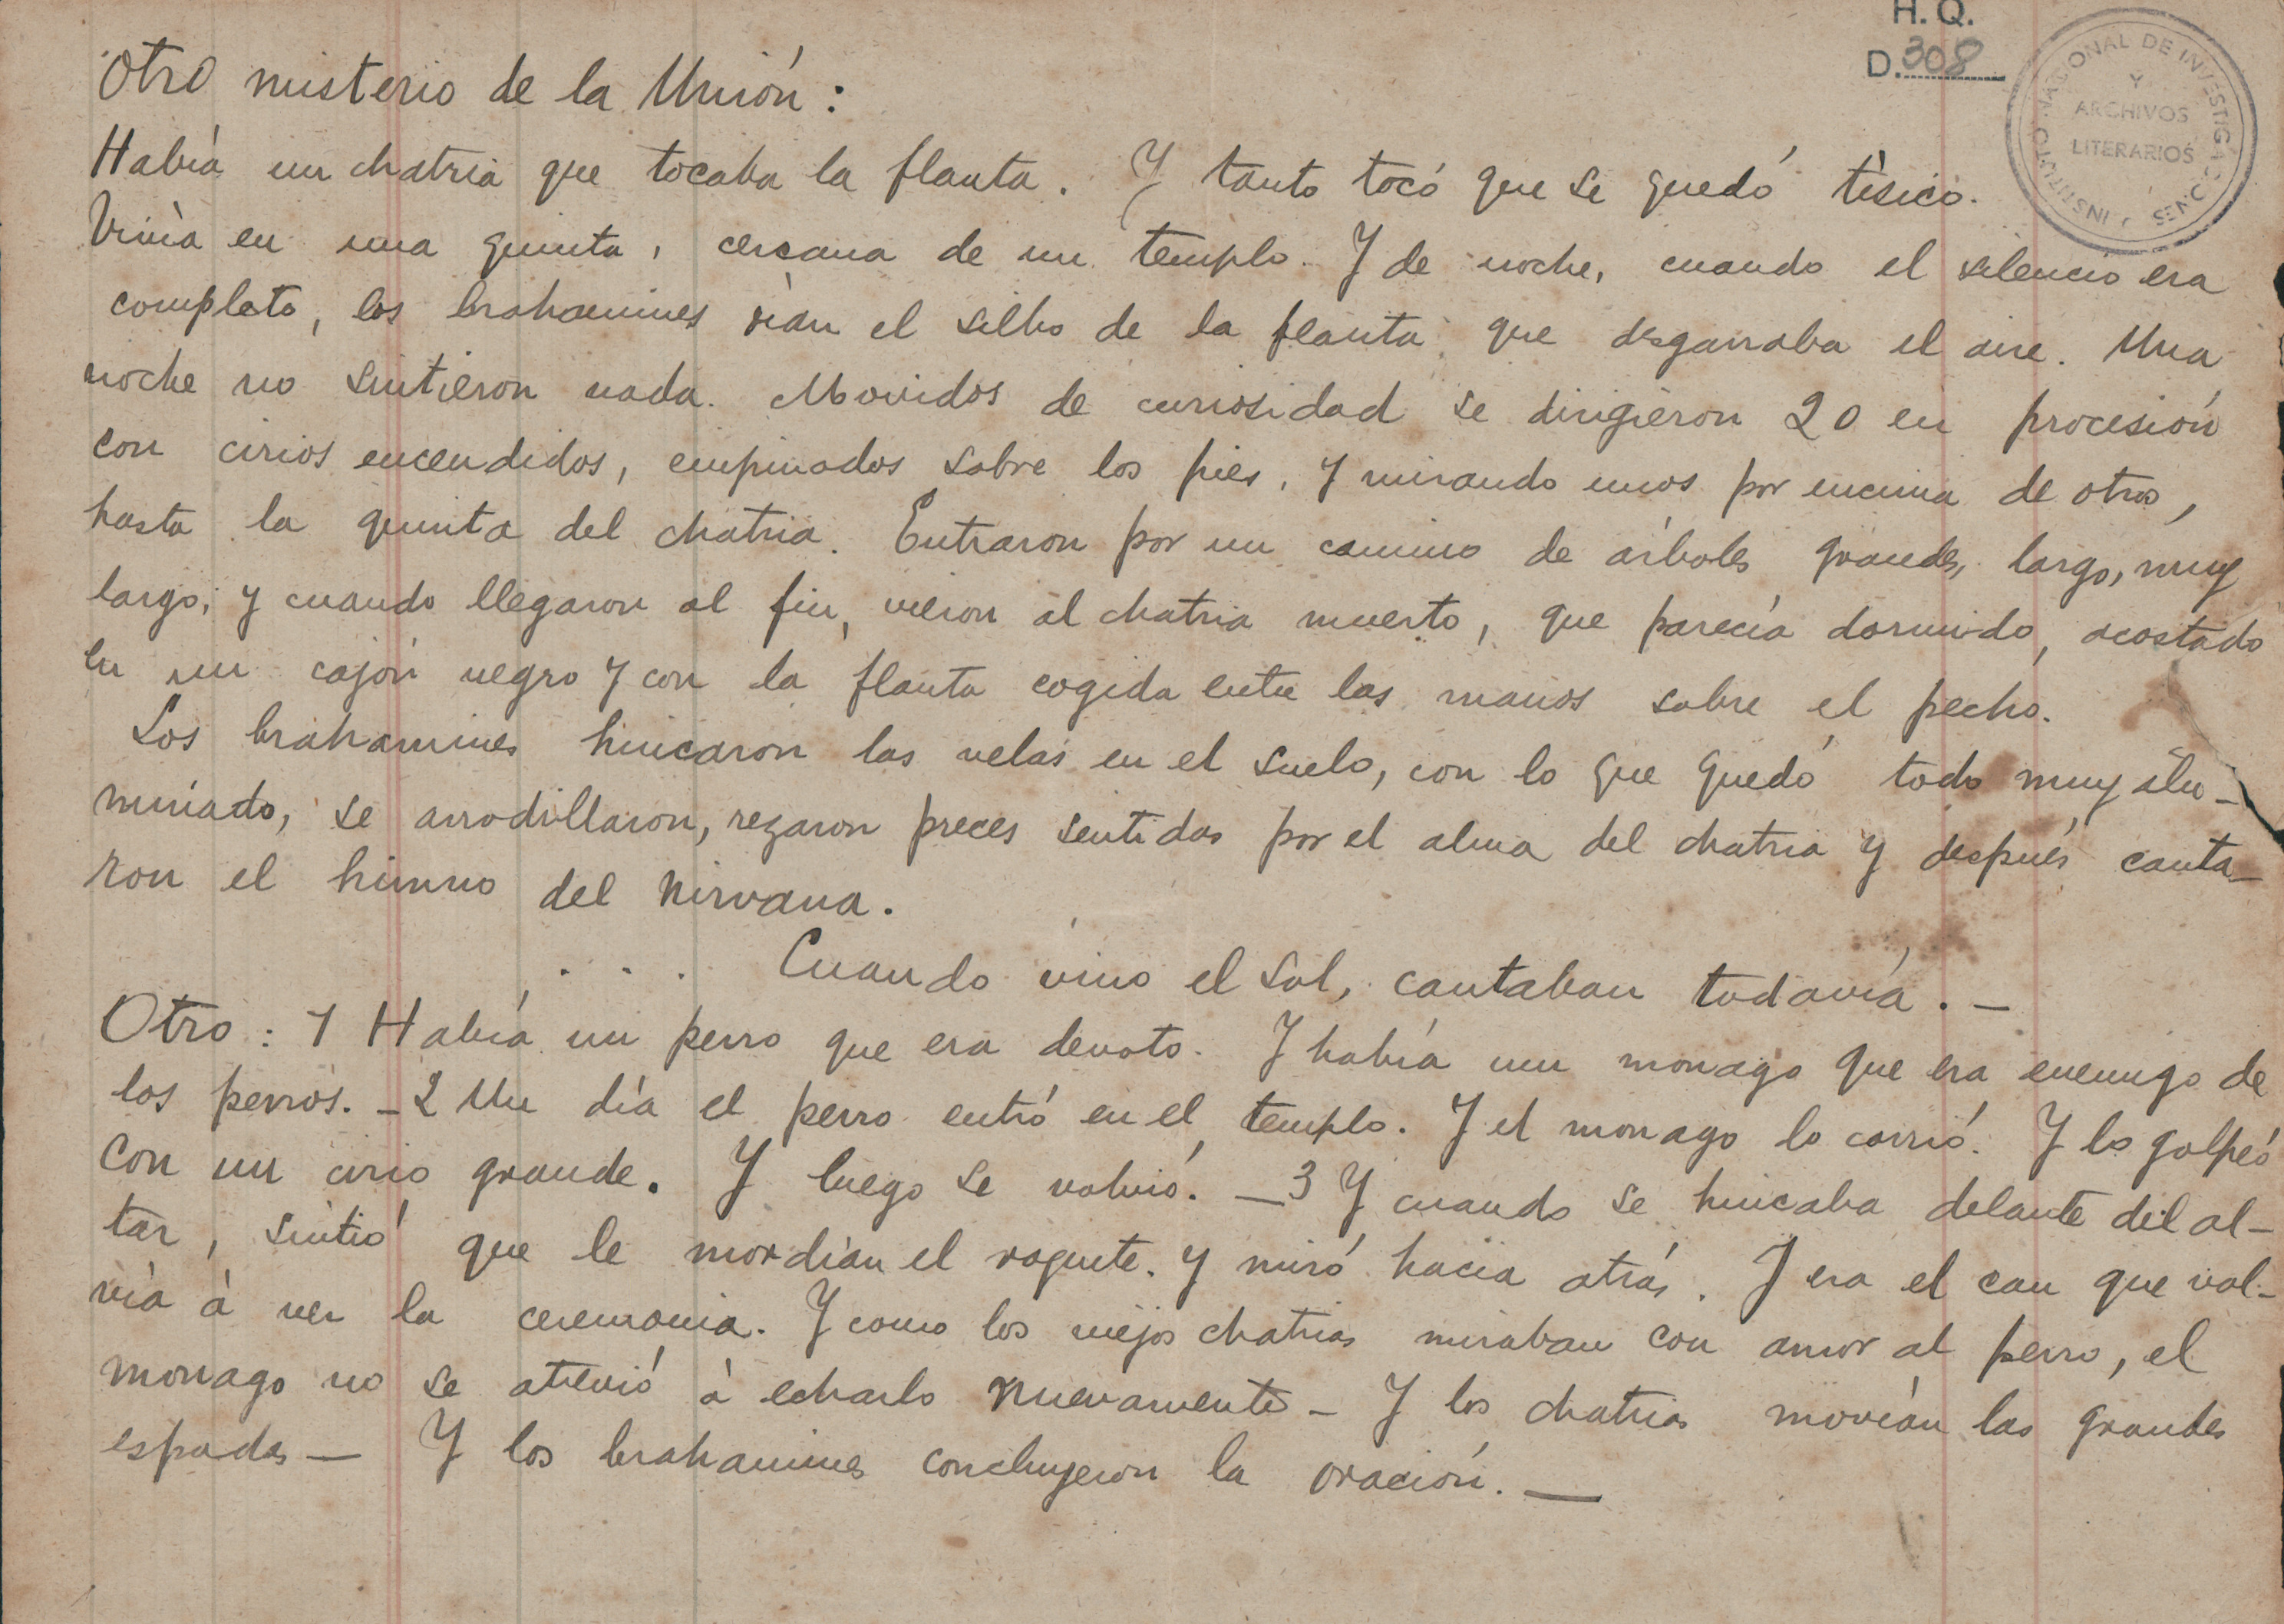 H. Q.
D. 308
INSTITUTO NACIONAL DE INVESTIGACIONES
Y
ARCHIVOS
LITERARIOS
Otro misterio de la Unión:
Había un chatria que tocaba la flauta. Y tanto tocó que se quedó tísico.
Vivía en una quinta, cercana de un templo. Y de noche, cuando el silencio era
completo, los brahamines oían el silbo de la flauta que desgarraba el aire. Una
noche no sintieron nada. Movidos de curiosidad se dirigieron 20 en procesión
con cirios encendidos, empinados sobre los pies, y mirando unos por encima de otros,
hasta la quinta del chatria. Entraron por un camino de árboles grandes, largo, muy
largo; y cuando llegaron al fin, vieron al chatria muerto, que parecía dormido, acostado
en un cajón negro y con la flauta cogida entre las manos sobre el pecho.
Los brahamines hincaron las velas en el suelo, con lo que quedó todo muy ilu-
minado, se arrodillaron, rezaron preces sentidas por el alma del chatria y después canta-
ron el himno del Nirvana.
. . . Cuando vino el sol, cantaban todavía. —
Otro: 1 Había un perro que era devoto. Y había un monago que era enemigo de
los perros. – 2 Un día el perro entró en el templo. Y el monago lo corrió. Y lo golpeó
con un cirio grande. Y luego se volvió. — 3 Y cuando se hincaba delante del al-
tar, sintió que le mordían el roquete. Y miró hacia atrás. Y era el can que vol-
vía à ver la ceremonia. Y como los viejos chatrias miraban con amor al perro, el
monago no se atrevió à echarlo nuevamente – Y los chatrias movían las grandes
espadas — Y los brahamines concluyeron la oración. —